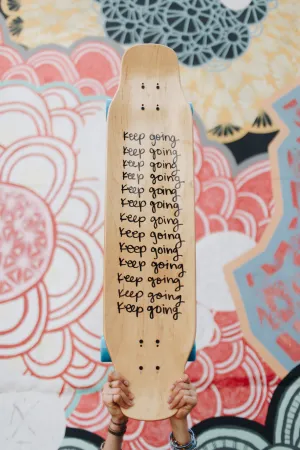 Keep going
Keep going
Keep going
Keep going
Keep going
Keep going
Keep going
Keep going
Keep going
Keep going
Keep going
Keep going
Keep going